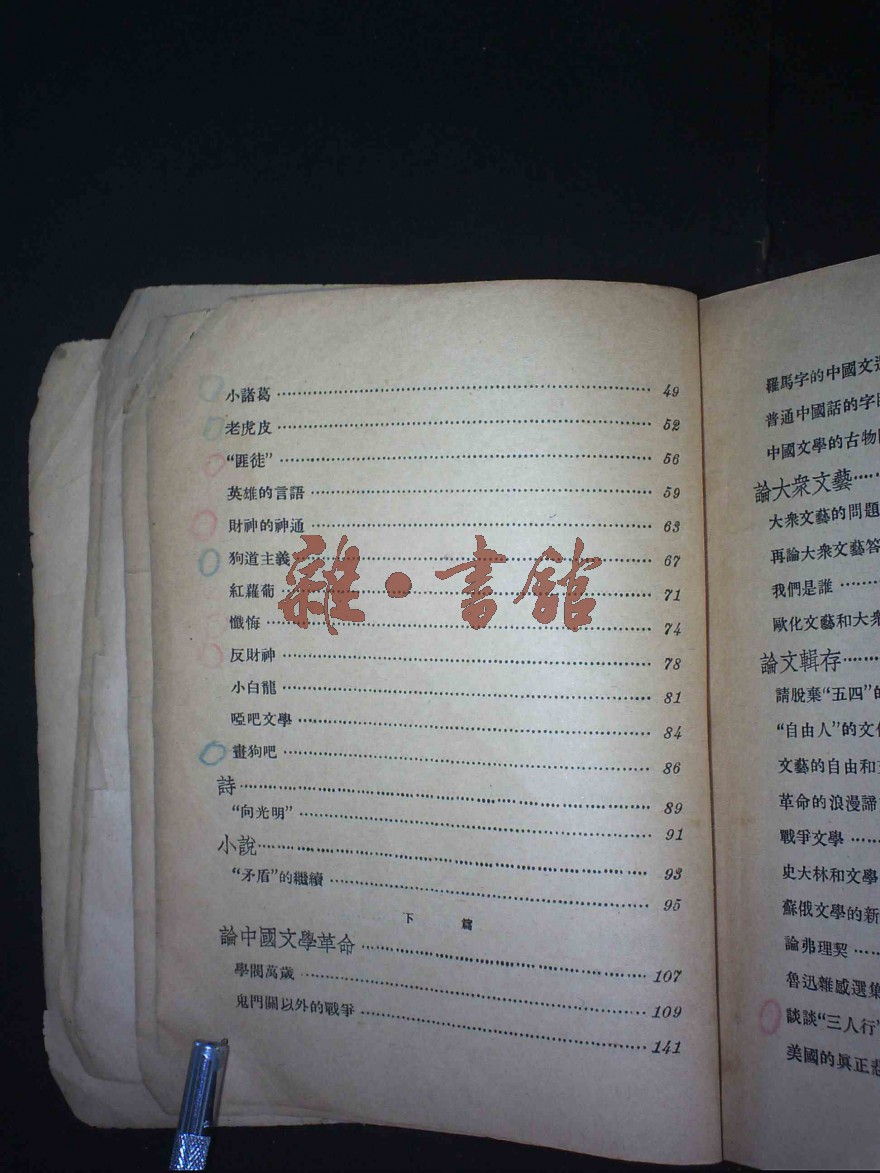 小諸葛 49
老虎皮 52
“匪徒” 56
英雄的言語 59
財神的神通 63
狗道主義 67
紅蘿蔔 71
懺悔 74
反財神 78
小白龍 81
啞吧文學 84
畫狗吧 86
詩 89
“向光明” 91
小說 93
“矛盾”的繼續 95
下篇
論中國文學革命 107
學閥萬歲 109
鬼門關以外的戰爭 141
羅馬字的中國文
普通中國話的字
中國文學的古物
論大衆文藝
大衆文藝的問題
再論大衆文藝答
我們是誰
歐化文藝和大衆
論文輯存
請脫棄“五四”的
“自由人”的文化
文藝的自由和
革命的浪漫諦
戰爭文學
史大林和文學
蘇俄文學的新
論弗理契
魯迅雜感選集
談談“三人行”
美國的眞正悲
雜·書館